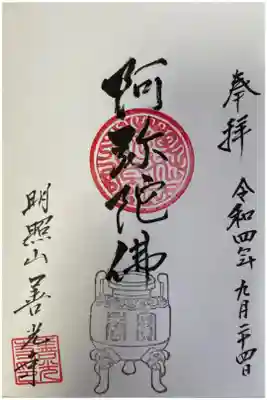 奉拝 令和四年 九月二十四日
阿弥陀佛
明照山 善光寺